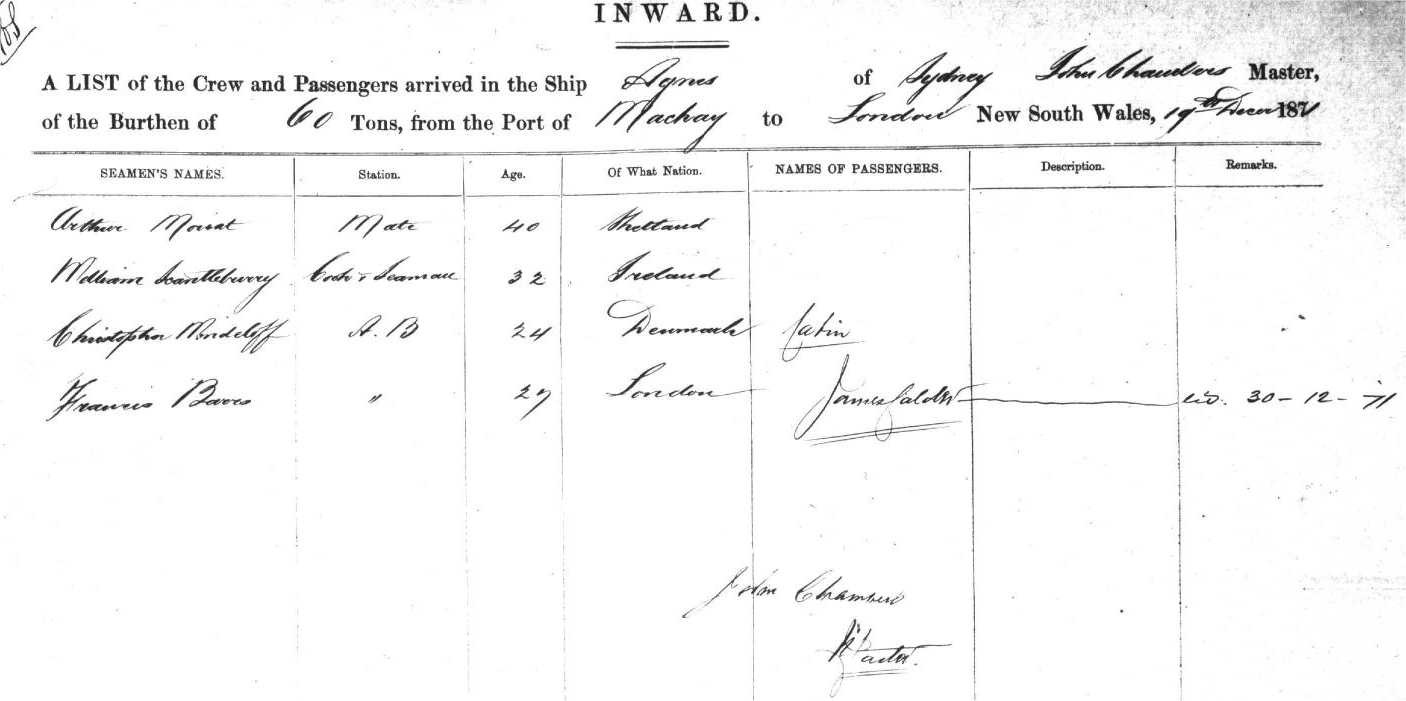 INWARD.
A LIST of the Crew and Passengers arrived in the Ship Agnes of Sydney John Chambers Master,
of the Burthen of 60 Tons, from the Port of Mackay to London New South Wales, 19th Decer 1871
SEAMEN'S NAMES. Station. Age. Of What Nation. NAMES OF PASSENGERS. Description. Remarks.
Arthur Mate 40 Shetland
William Scantlebury Cook & Seaman 32 Ireland
Christopher A. B 24 Denmark Cabin
Francis " 27 London James 30-12-71
John Chambers
Master.